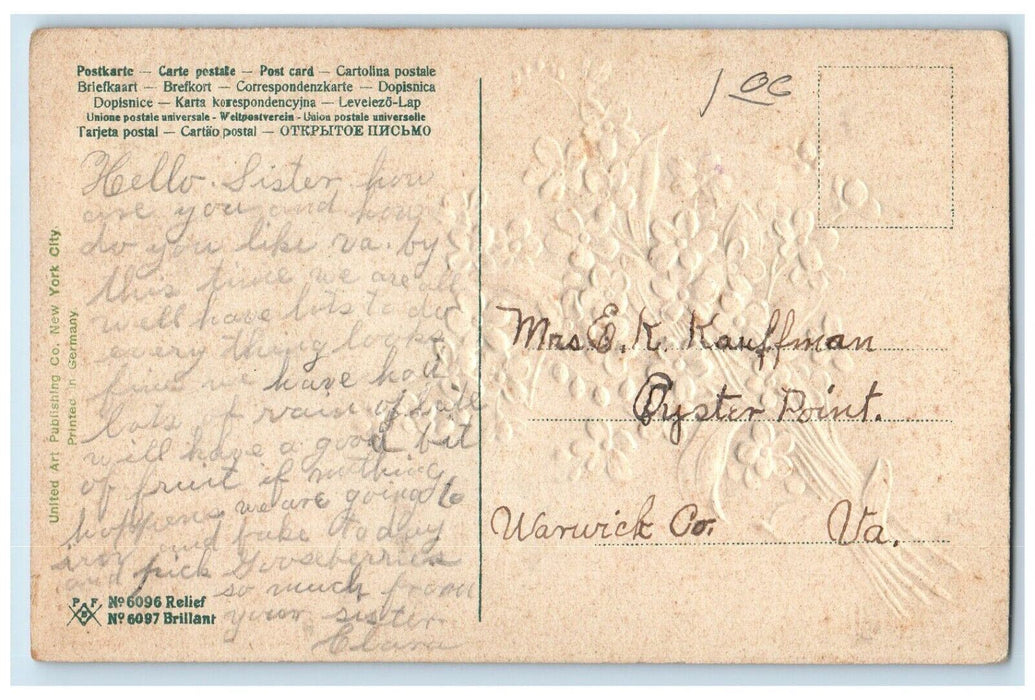 Postkarte — Carte postale — Post card — Cartolina postale
Briefkaart — Brefkort — Correspondenzkarte — Dopisnica
Dopisnice — Karta korespondencyjna — Levelező-Lap
Unione postale universale - Weltpostverein - Union postale universelle
Tarjeta postal — Cartão postal — ОТКРЫТОЕ ПИСЬМО
1.00
Hello. Sister how
are you and how
do you like va. by
this time we are all
well have lots to do
every thing looks
fine we have had
lots of rain of late
will have a good bit
of fruit if nothing
happens we are going to
iron and bake to day
and pick Gooseberries
so much from
your sister
Clara
Mrs. E. K. Kauffman
Oyster Point.
Warwick Co. Va.
United Art Publishing Co. New York City
Printed in Germany
P F B
No 6096 Relief
No 6097 Brillant